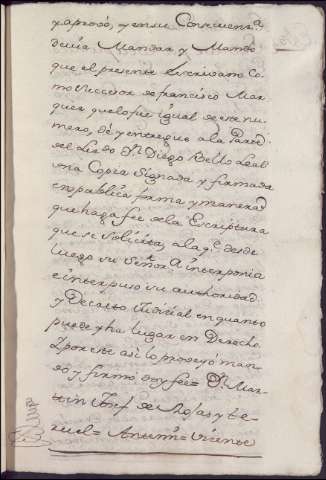 y aprovó, y en su Consequen.ª
devia Mandar y Mandó
que el presente Escrivano Co
mo subcesor de francisco Mar
quez que lo fue igual de este nu
mero, dé y entregue a la Parte
del Lizdo Dn Diego Bello Leal
una Copia Signada y firmada
en publica forma y manera
que haga fee de la Escriptura
que se solicita, a la q.e desde
luego su Señoria interponia
e interpuso su authoridad
y Decreto Judicial en quanto
puede y ha lugar en Derecho
Y por este asi lo proveyó man
dó y firmó doy fee = Dn Mar
tin Josef de Rojas y te
ruel = Antemi = Vicente